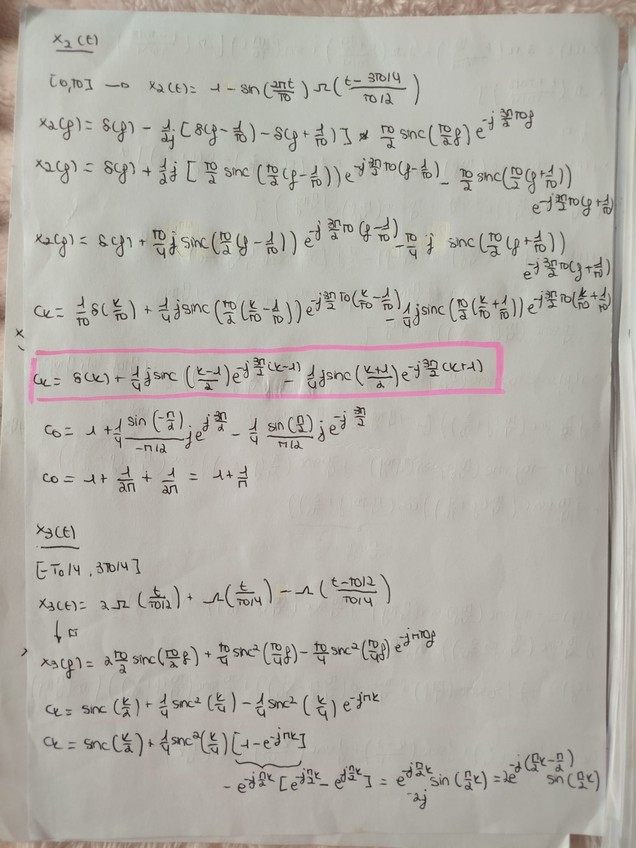 x₂(t)
[0,T0] → x₂(t) = 1 - sin(2πt/T0) Π((t - 3T0/4)/(T0/2))
x₂(f) = δ(f) - 1/2j [δ(f - 1/T0) - δ(f + 1/T0)] * T0/2 sinc(T0/2 f) e^(-j 3π/2 T0f)
x₂(f) = δ(f) + 1/2 j [T0/2 sinc(T0/2 (f - 1/T0)) e^(-j 3π/2 T0(f - 1/T0)) - T0/2 sinc(T0/2 (f + 1/T0)) e^(-j 3π/2 T0(f + 1/T0))
x₂(f) = δ(f) + T0/4 j sinc(T0/2 (f - 1/T0)) e^(-j 3π/2 T0(f - 1/T0)) - T0/4 j sinc(T0/2 (f + 1/T0)) e^(-j 3π/2 T0(f + 1/T0))
ck = 1/T0 δ(k/T0) + 1/4 j sinc(T0/2 (k/T0 - 1/T0)) e^(-j 3π/2 T0(k/T0 - 1/T0)) - 1/4 j sinc(T0/2 (k/T0 + 1/T0)) e^(-j 3π/2 T0(k/T0 + 1/T0))
ck = δ(k) + 1/4 j sinc((k-1)/2) e^(-j 3π/2 (k-1)) - 1/4 j sinc((k+1)/2) e^(-j 3π/2 (k+1))
c0 = 1 + 1/4 sin(-π/2)/(-π/2) j e^(j 3π/2) - 1/4 sin(π/2)/(π/2) j e^(-j 3π/2)
c0 = 1 + 1/2π + 1/2π = 1 + 1/π
x₃(t)
[-T0/4, 3T0/4]
x₃(t) = 2Π(t/(T0/2)) + Λ(t/(T0/4)) - Λ((t - T0/2)/(T0/4))
↓ F
x₃(f) = 2 T0/2 sinc(T0/2 f) + T0/4 sinc²(T0/4 f) - T0/4 sinc²(T0/4 f) e^(-jπT0f)
ck = sinc(k/2) + 1/4 sinc²(k/4) - 1/4 sinc²(k/4) e^(-jπk)
ck = sinc(k/2) + 1/4 sinc²(k/4) [1 - e^(-jπk)]
- e^(-j π/2 k) [e^(-j π/2 k) - e^(j π/2 k)] = e^(-j π/2 k) sin(π/2 k) = 2e^(-j(π/2 k - π/2)) sin(π/2 k)
-2j